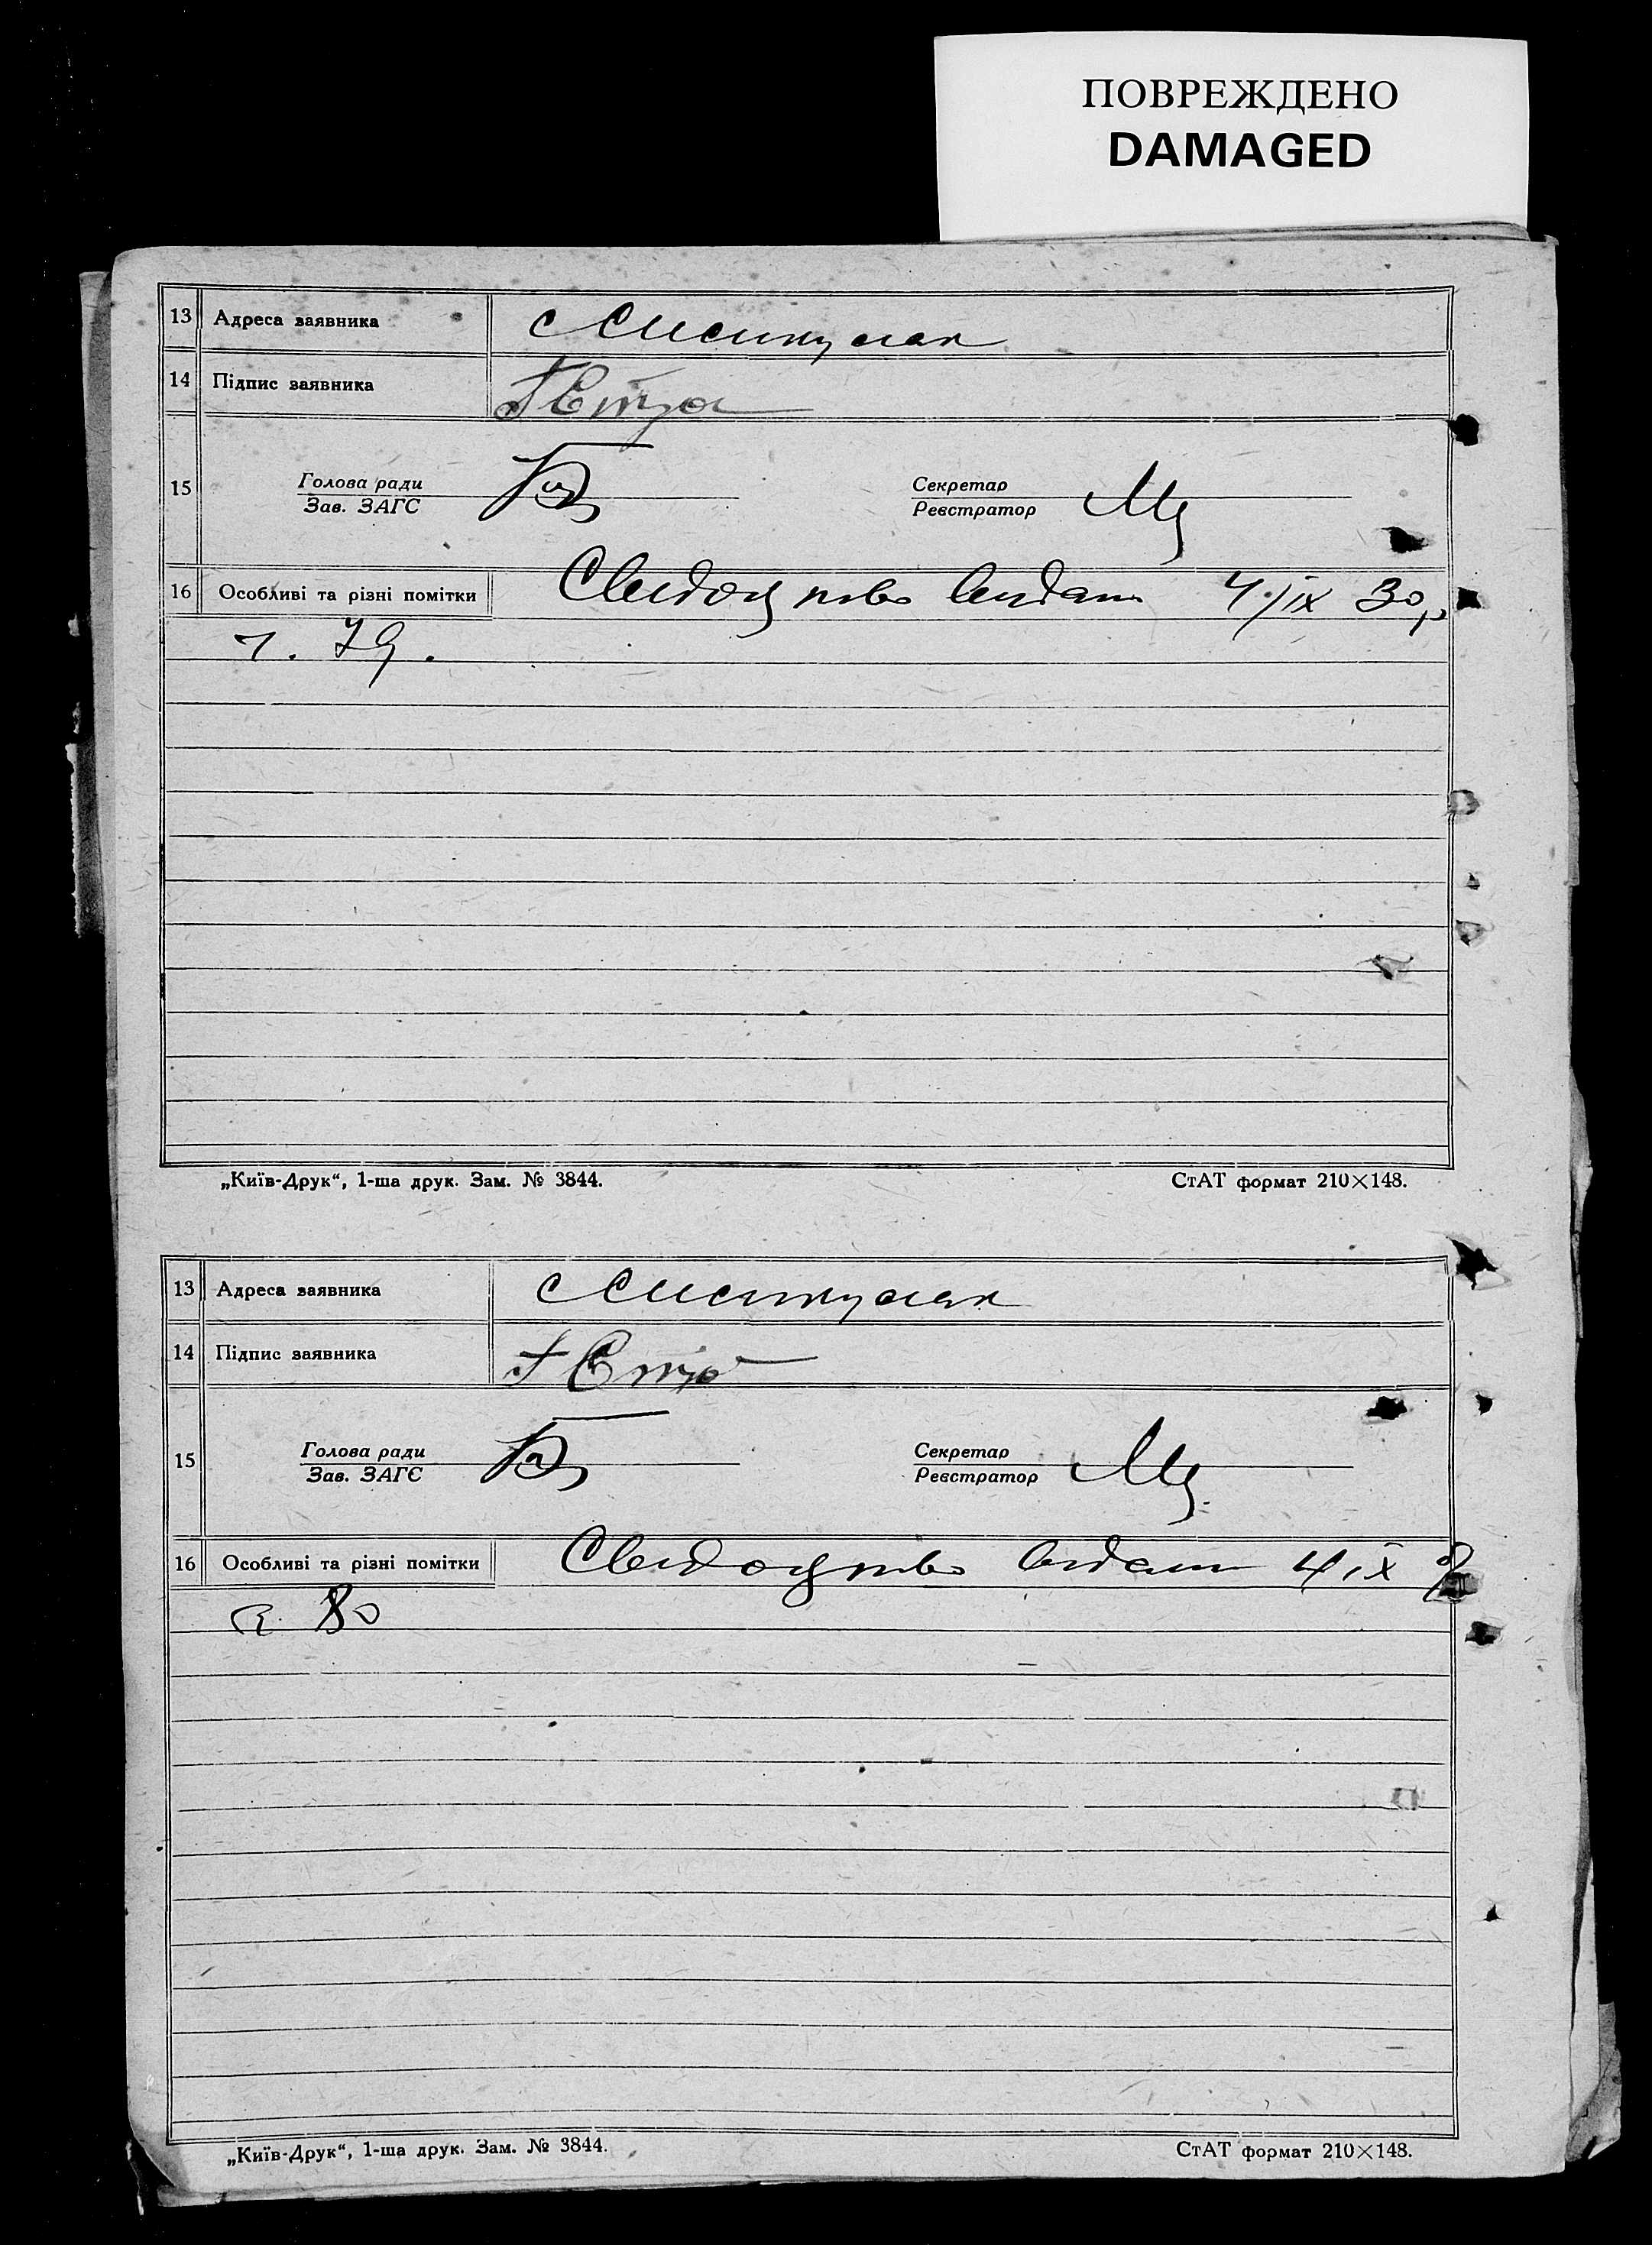 ПОВРЕЖДЕНО
DAMAGED
13 Адреса заявника с
14 Підпис заявника
15 Голова ради Секретар
Зав. ЗАГС Реєстратор
16 Особливі та різні помітки Свидоцтво видано 4/IX 30 р
ч. 79.
„Київ-Друк“, 1-ша друк. Зам. № 3844. СтАТ формат 210×148.
13 Адреса заявника с
14 Підпис заявника
15 Голова ради Секретар
Зав. ЗАГС Реєстратор
16 Особливі та різні помітки Свидоцтво видано 4 IX
80
„Київ-Друк“, 1-ша друк. Зам. № 3844. СтАТ формат 210×148.